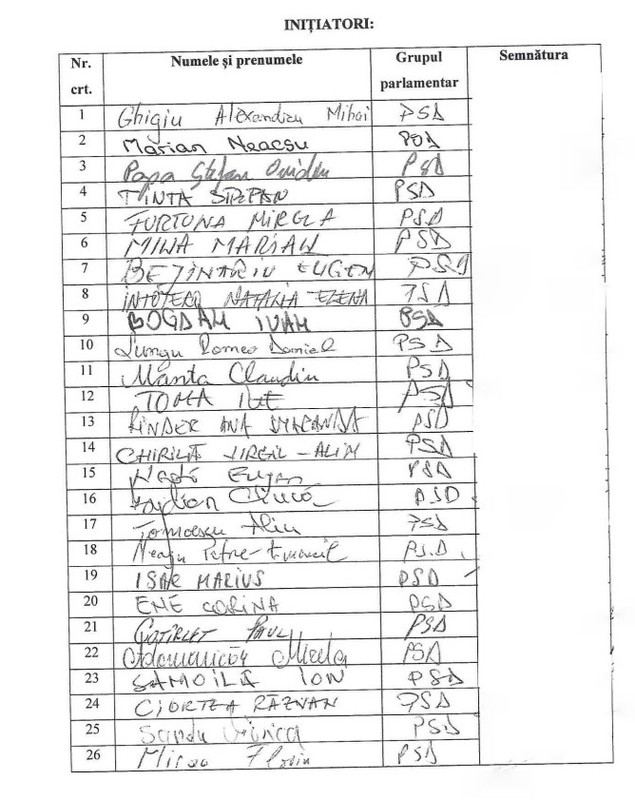 INIȚIATORI:
Nr. crt. Numele și prenumele Grupul parlamentar Semnătura
1 Ghigiu Alexandru Mihai PSD
2 Marian Neacșu PSD
3 Popa Ștefan Ovidiu PSD
4 ȚINTĂ STEPAN PSD
5 FURTUNĂ MIRELA PSD
6 MINA MARIAN PSD
7 BEJINARIU EUGEN PSD
8 INTOTERO NATALIA ELENA PSD
9 BOGDAN IVAN PSD
10 Lungu Romeo Daniel PSD
11 Manta Claudiu PSD
12 TOMA ILIE PSD
13 RINDER ANA SMARANDA PSD
14 CHIRILĂ VIRGIL-ALIN PSD
15 Eugen PSD
16 PSD
17 PSD
18 Neagu Petre-Emanoil PSD
19 ISAR MARIUS PSD
20 ENE CORINA PSD
21 PAUL PSD
22 PSD
23 SAMOILĂ ION PSD
24 CIORTEA RĂZVAN PSD
25 Sandu Viorica PSD
26 Mircea Florin PSD